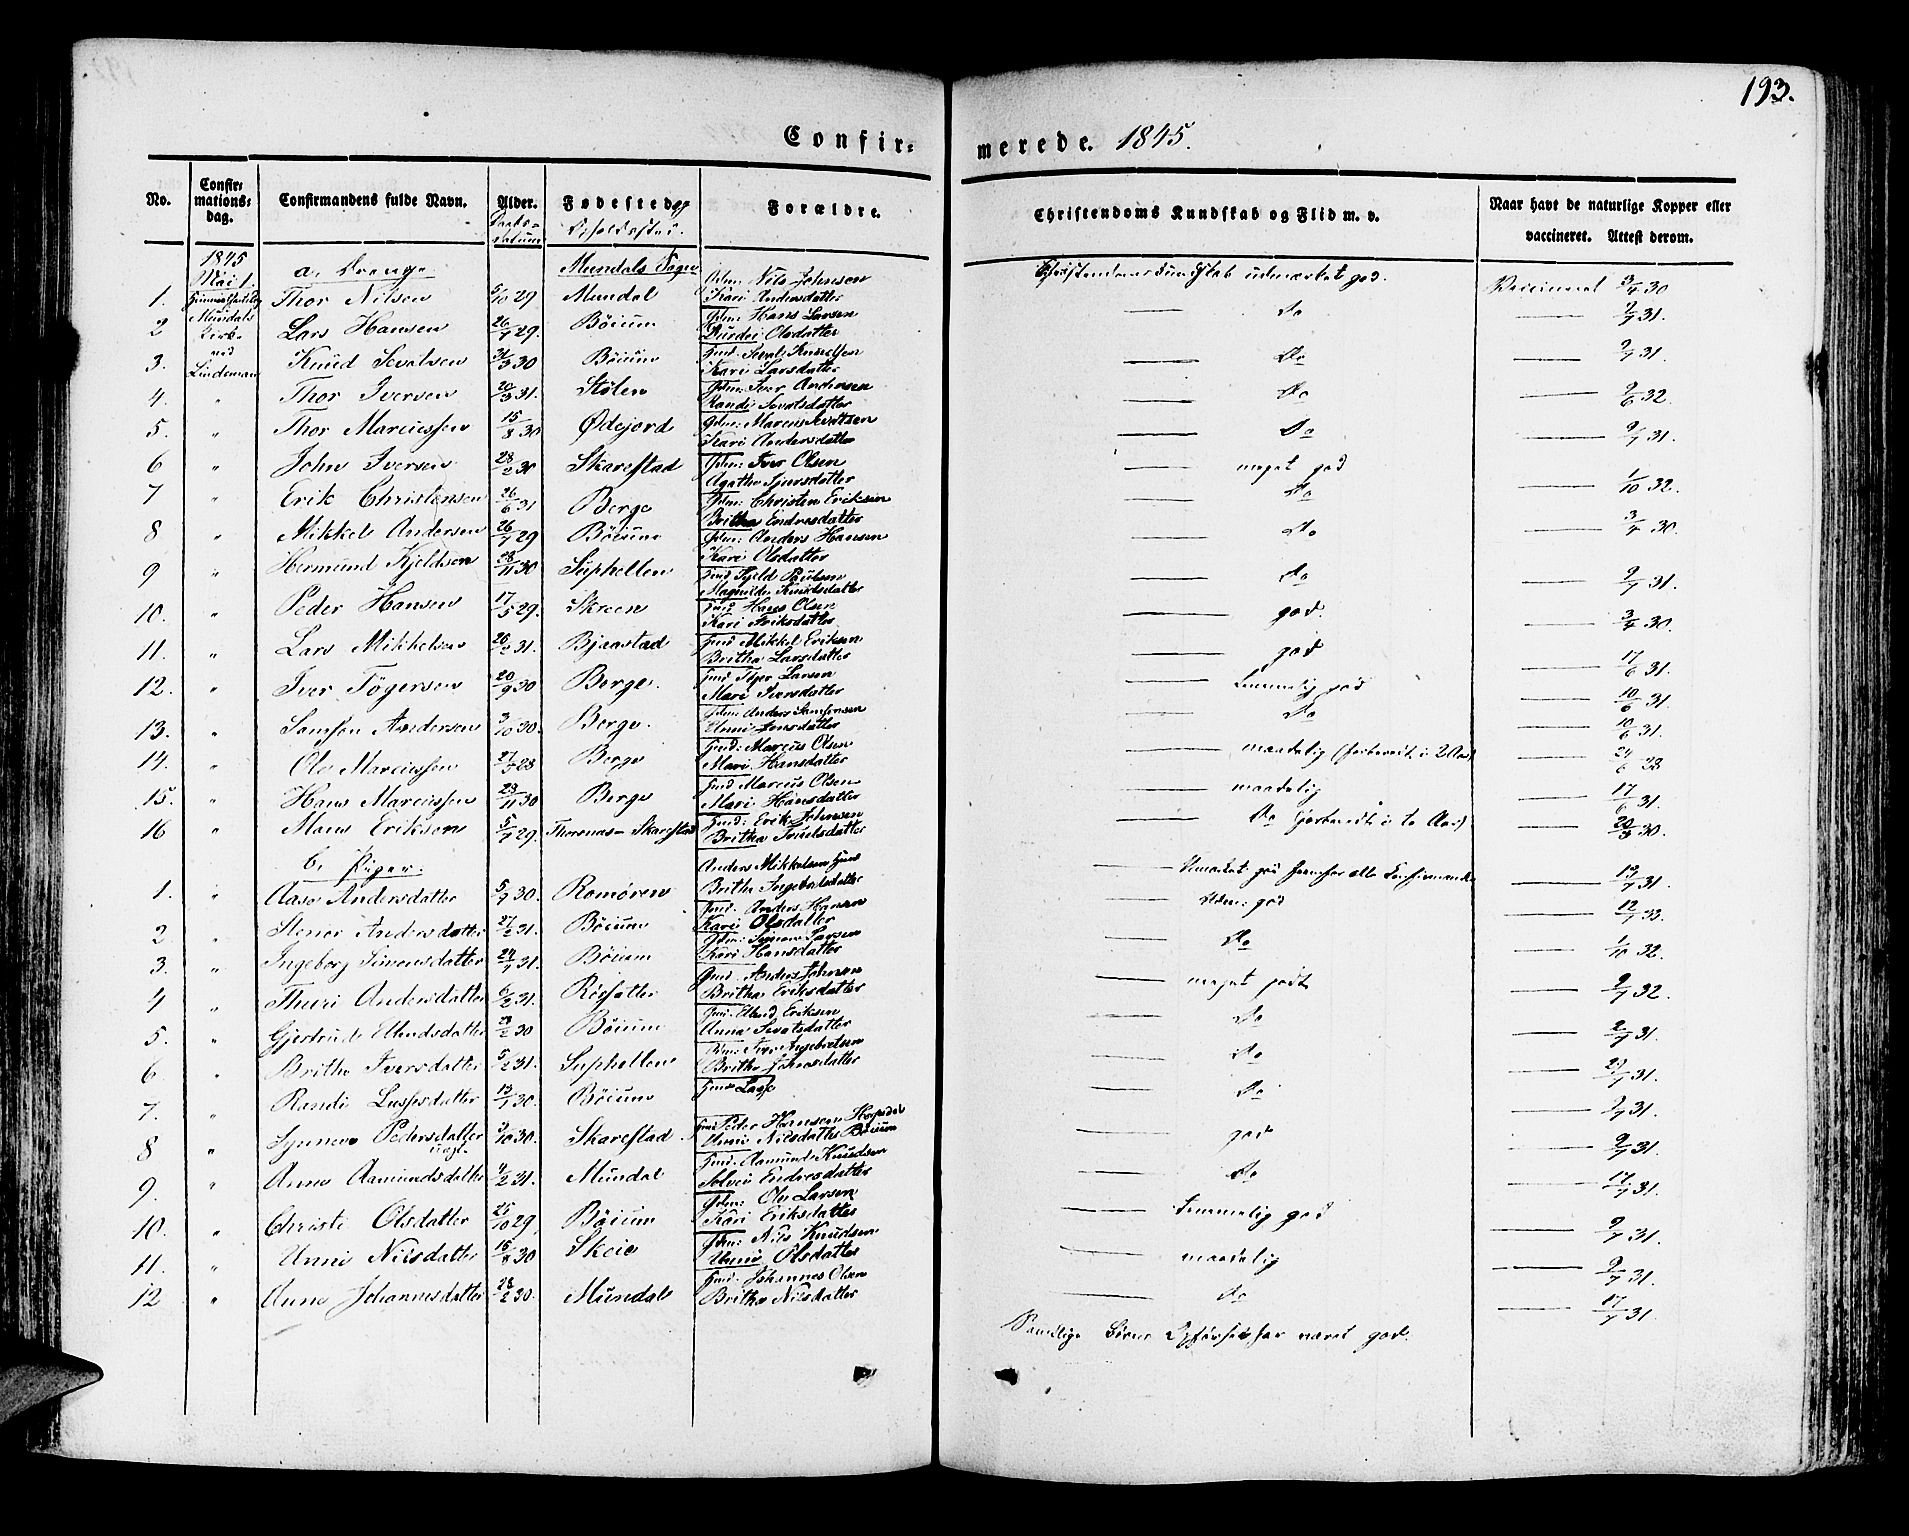 193.
Confir- merede. 1845.
No. Confir-mations-dag. Confirmandens fulde Navn. Alder. Fødested og Forældre. Christendoms Kundskab og Flid m. v. Naar havt de naturlige Kopper eller vaccineret. Attest derom.
Daabs-datum Opholdssted.
1845 Mai 1. a. Drenge Mundals Sogn
Mundals Kirke ved Lindeman
1. Thor Nilsen 5/10 29 Mundal Gdm: Nils Johnsen Kari Andersdatter Christendomskundskab udmærket god. Vaccineret 3/4 30
2 " Lars Hansen 26/7 29. Böium Gdm: Hans Larsen Durdei Olsdatter — Do — 2/7 31.
3. " Knud Sevatsen 31/3 30 Böium Huusm. Sevat Knudsen Kari Larsdatter — Do — 2/7 31.
4. " Thor Iversen 20/3 31. Stølen Gdm: Iver Andersen Randi Sevatsdatter — Do — 9/6 32.
5. " Thor Marcussen 15/8 30 Ødejord Gdm: Marcus Kari Andersdatter — Do — 9/7 31.
6 " John Iversen 28/2 30 Skarestad Gdm: Iver Olsen Agathe Sjursdatter — meget god
7 " Erik Christensen 26/6 31 Berge Gdm: Christen Eriksen Britha Endresdatter — Do — 1/10 32.
8 " Mikkel Andersen 26/7 29 Böium Gdm: Anders Hansen Kari Olsdatter — Do — 3/4 30.
9 " Hermund Kjeldsen 28/11 30 Suphellen Huusm Kjeld Paulsen Magnilde Knudsdatter — Do — 9/7 31.
10. " Peder Hansen 17/5 29. Skreen Hans Olsen Kari Eriksdatter — god. — 3/4 30.
11. " Lars Mikkelsen 20/2 31. Bjaastad Mikkel Eriksen Britha Larsdatter — god — 17/6 31.
12. " Iver Tögersen 20/9 30 Berge. Töger Larsen Mari Iversdatter — temmelig god — 10/6 31.
13. " Samson Andersen 3/10 30. Berge. Gdm: Anders Samsonsen Unni Jensdatter — Do — 10/6 31.
14. " Ole Marcussen 27/3 28 Berge Marcus Olsen Mari Hansdatter — maadelig (forberedt i 2 Aar) 24/6 32
15. " Hans Marcussen 23/11 30 Berge Marcus Olsen Mari Hansdatter — maadelig — 17/6 31.
16 " Mons Eriksen 5/7 29. Skarestad Erik Johnsen Britha Truelsdatter — Do (forberedt i to Aar) — 20/3 30.
b. Piger.
1. " Aase Andersdatter 5/7 30. Romören Anders Mikkelsen Huusm Britha Ingebrigtsdatter — Udmærket god fremfor alle Confirmander — 13/7 31.
2 " Stener Andersdatter 27/2 31. Böium Anders Hansen Kari Olsdatter Udm: god — 12/7 33.
3. " Ingeborg Simonsdatter 24/7 31. Böium Gdm: Simon Larsen Kari Hansdatter — Do — 1/10 32.
4 " Thuri Andersdatter 6/2 31. Anders Johnsen Britha Eriksdatter — meget godt — 9/7 32.
5. " Gjertrude Ellendsdatter 28/2 30 Böium Ellend Eriksen Anna Sevatsdatter — Do — 2/7 31.
6 " Britha Iversdatter 5/2 31. Suphellen Gdm: Iver Ingebretsen Britha Johnsdatter — Do — 27/7 31.
7. " Randi Lassesdatter 13/7 30. Böium Lasse — Do — 2/7 31.
8 " Synneva Pedersdatter uægte 3/10 30. Skarestad Peder Hansen Unni Nilsdatter Böium — god — 9/7 31.
9. " Anna Aamundsdatter 9/2 31. Mundal Aamund Knudsen Solvei Endresdatter — Do — 17/7 31.
10. " Christi Olsdatter 25/10 29. Böium Gdm: Ole Larsen Kari Eriksdatter — temmelig god — 9/7 31.
11. " Unni Nilsdatter 16/8 30 Skeie Gdm: Nils Knudsen Unni Olsdatter — maadelig — 9/7 31.
12 " Anna Johannesdatter 28/2 30. Mundal Johannes Olsen Britha Nilsdatter — Do — 17/7 31.
Samtlige Börns Opförsel har været god.